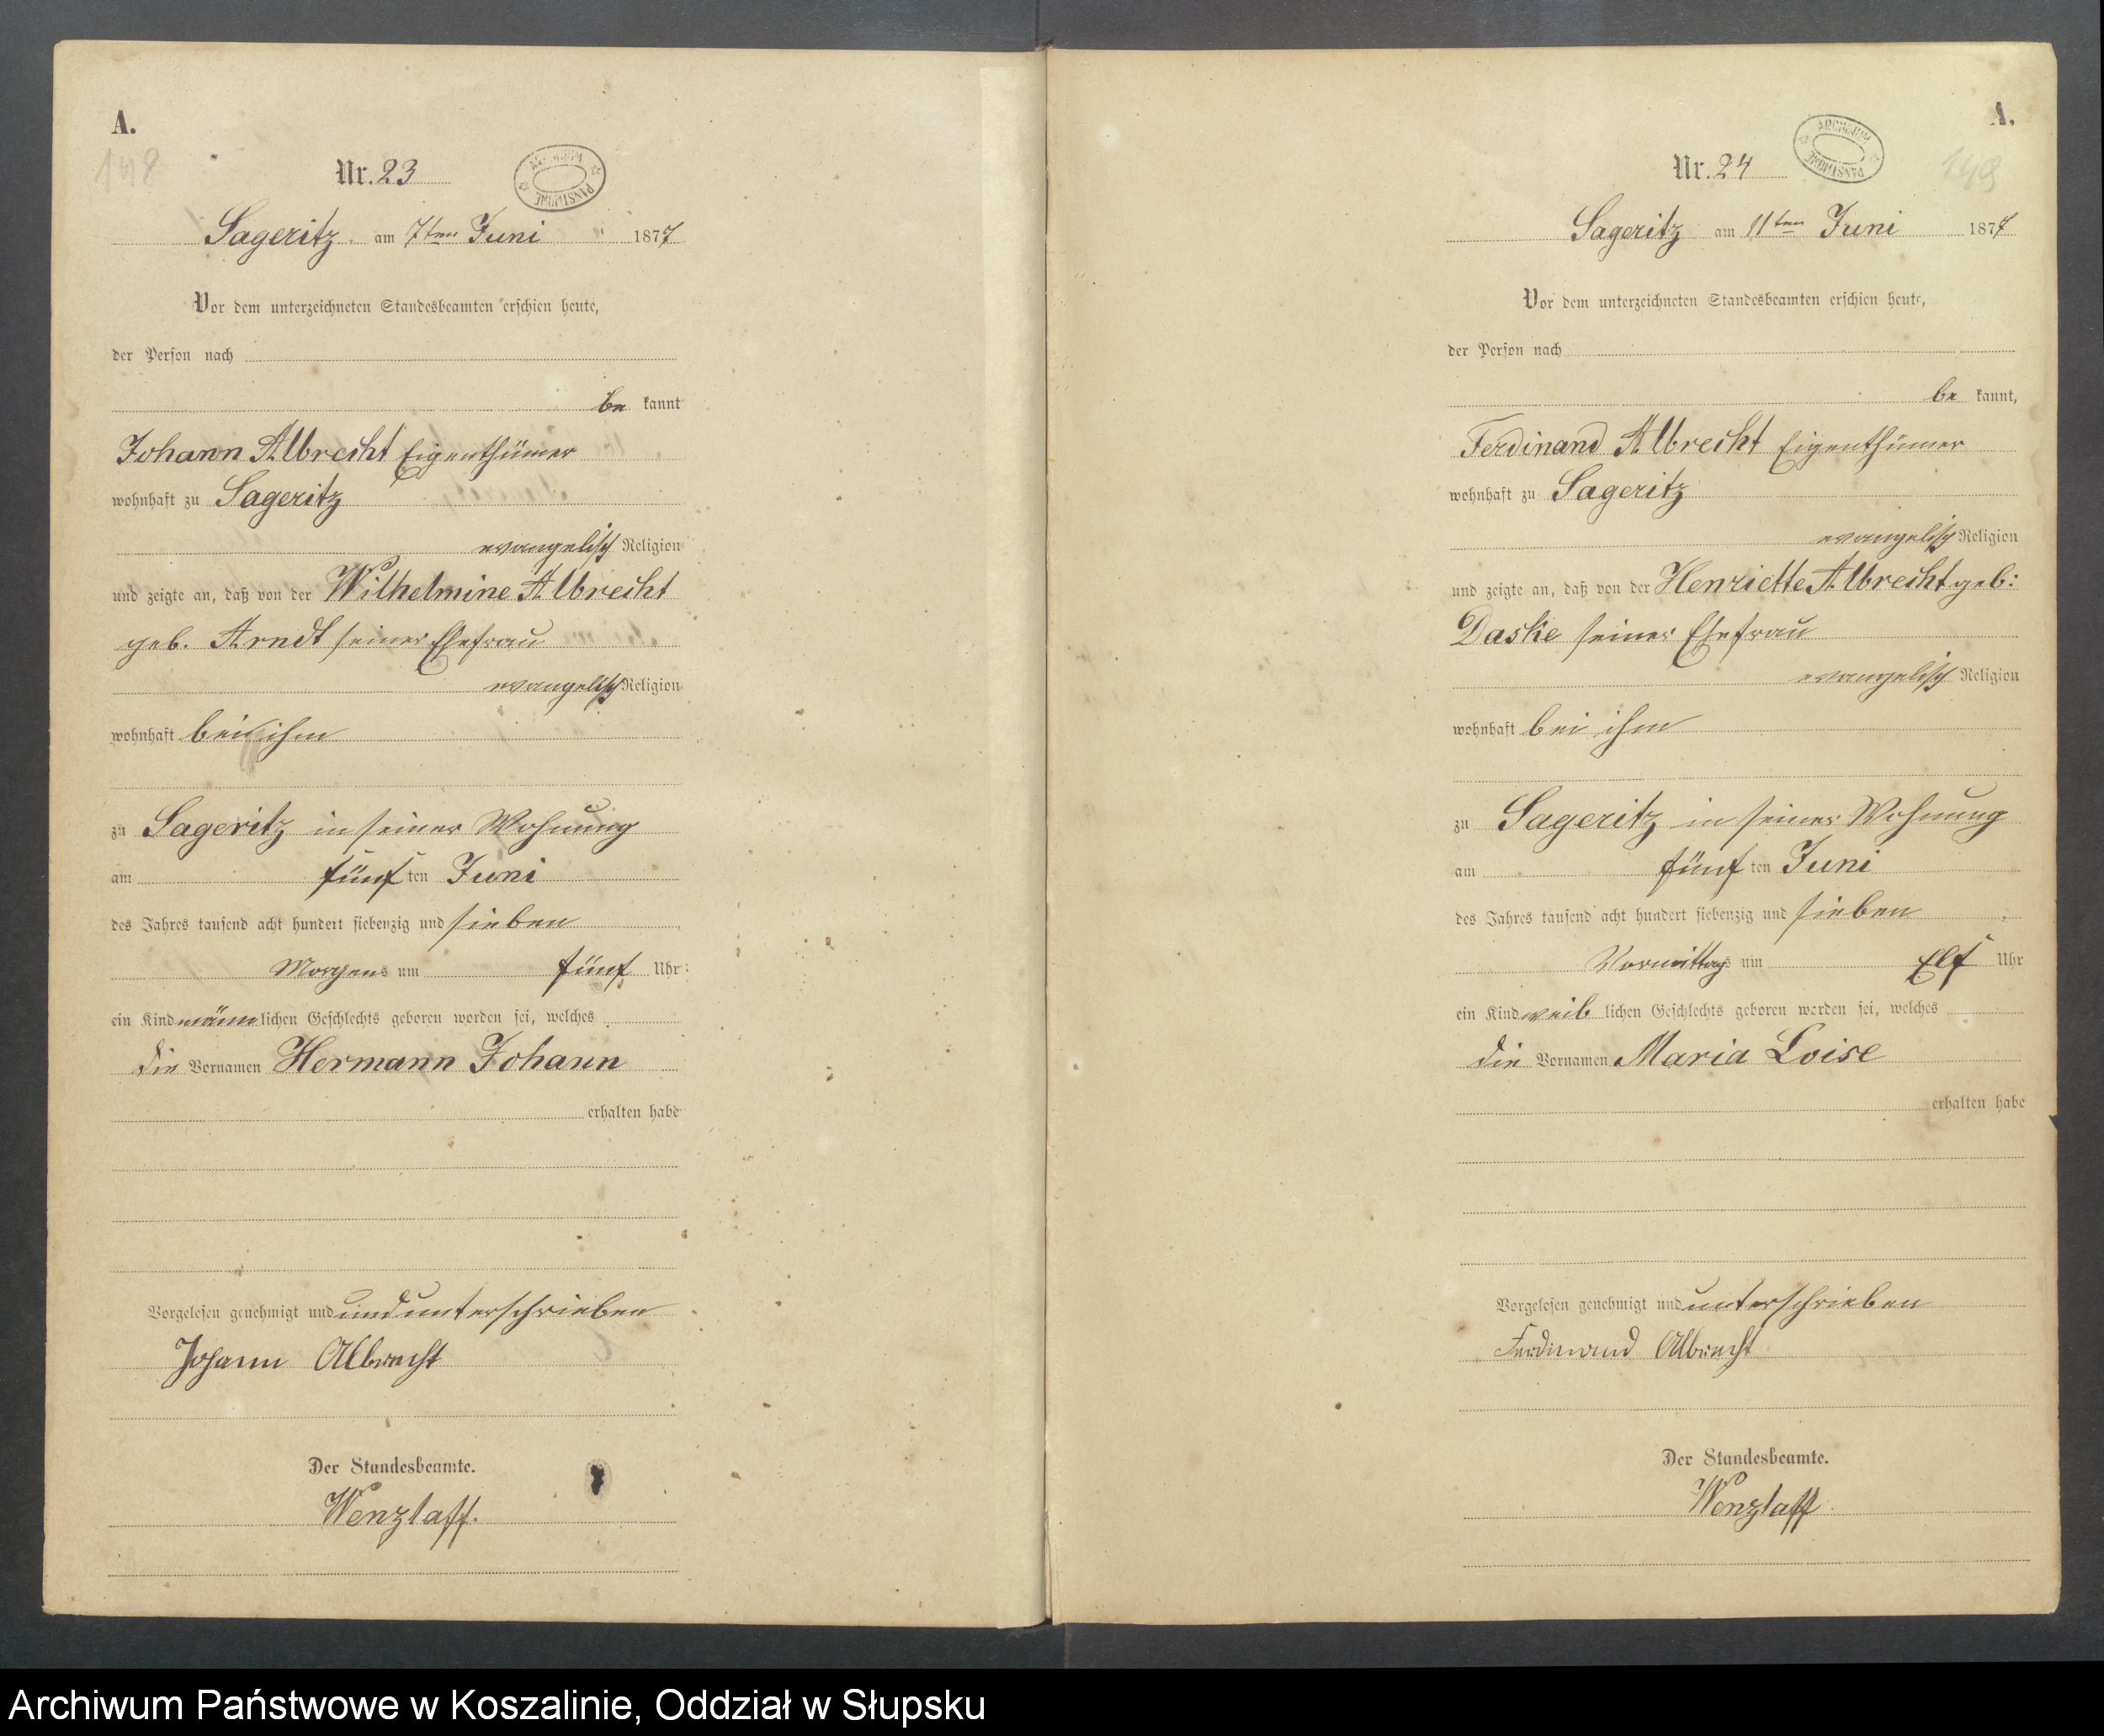 A.
148
Nr. 23
ARCHIWUM PAŃSTWOWE
Sageritz am 7ten Juni 1877
Vor dem unterzeichneten Standesbeamten erschien heute,
der Person nach
be kannt
Johann Albrecht Eigenthümer
wohnhaft zu Sageritz
evangelisch Religion
und zeigte an, daß von der Wilhelmine Albrecht
geb. Arndt seiner Ehefrau
evangelisch Religion
wohnhaft bei ihm
zu Sageritz in seiner Wohnung
am fünf ten Juni
des Jahres tausend acht hundert siebenzig und sieben
Morgens um fünf Uhr
ein Kind männlichen Geschlechts geboren worden sei, welches
die Vornamen Hermann Johann
erhalten habe
Vorgelesen genehmigt und und unterschrieben
Johann Albrecht
Der Standesbeamte.
Wenzlaff.
A.
149
Nr. 24
ARCHIWUM PAŃSTWOWE
Sageritz am 11ten Juni 1877
Vor dem unterzeichneten Standesbeamten erschien heute,
der Person nach
be kannt,
Ferdinand Albrecht Eigenthümer
wohnhaft zu Sageritz
evangelisch Religion
und zeigte an, daß von der Henriette Albrecht geb:
Daske seiner Ehefrau
evangelisch Religion
wohnhaft bei ihm
zu Sageritz in seiner Wohnung
am fünf ten Juni
des Jahres tausend acht hundert siebenzig und sieben
Vormittags um Elf Uhr
ein Kind weiblichen Geschlechts geboren worden sei, welches
die Vornamen Maria Loise
erhalten habe
Vorgelesen genehmigt und unterschrieben
Ferdinand Albrecht
Der Standesbeamte.
Wenzlaff
Archiwum Państwowe w Koszalinie, Oddział w Słupsku